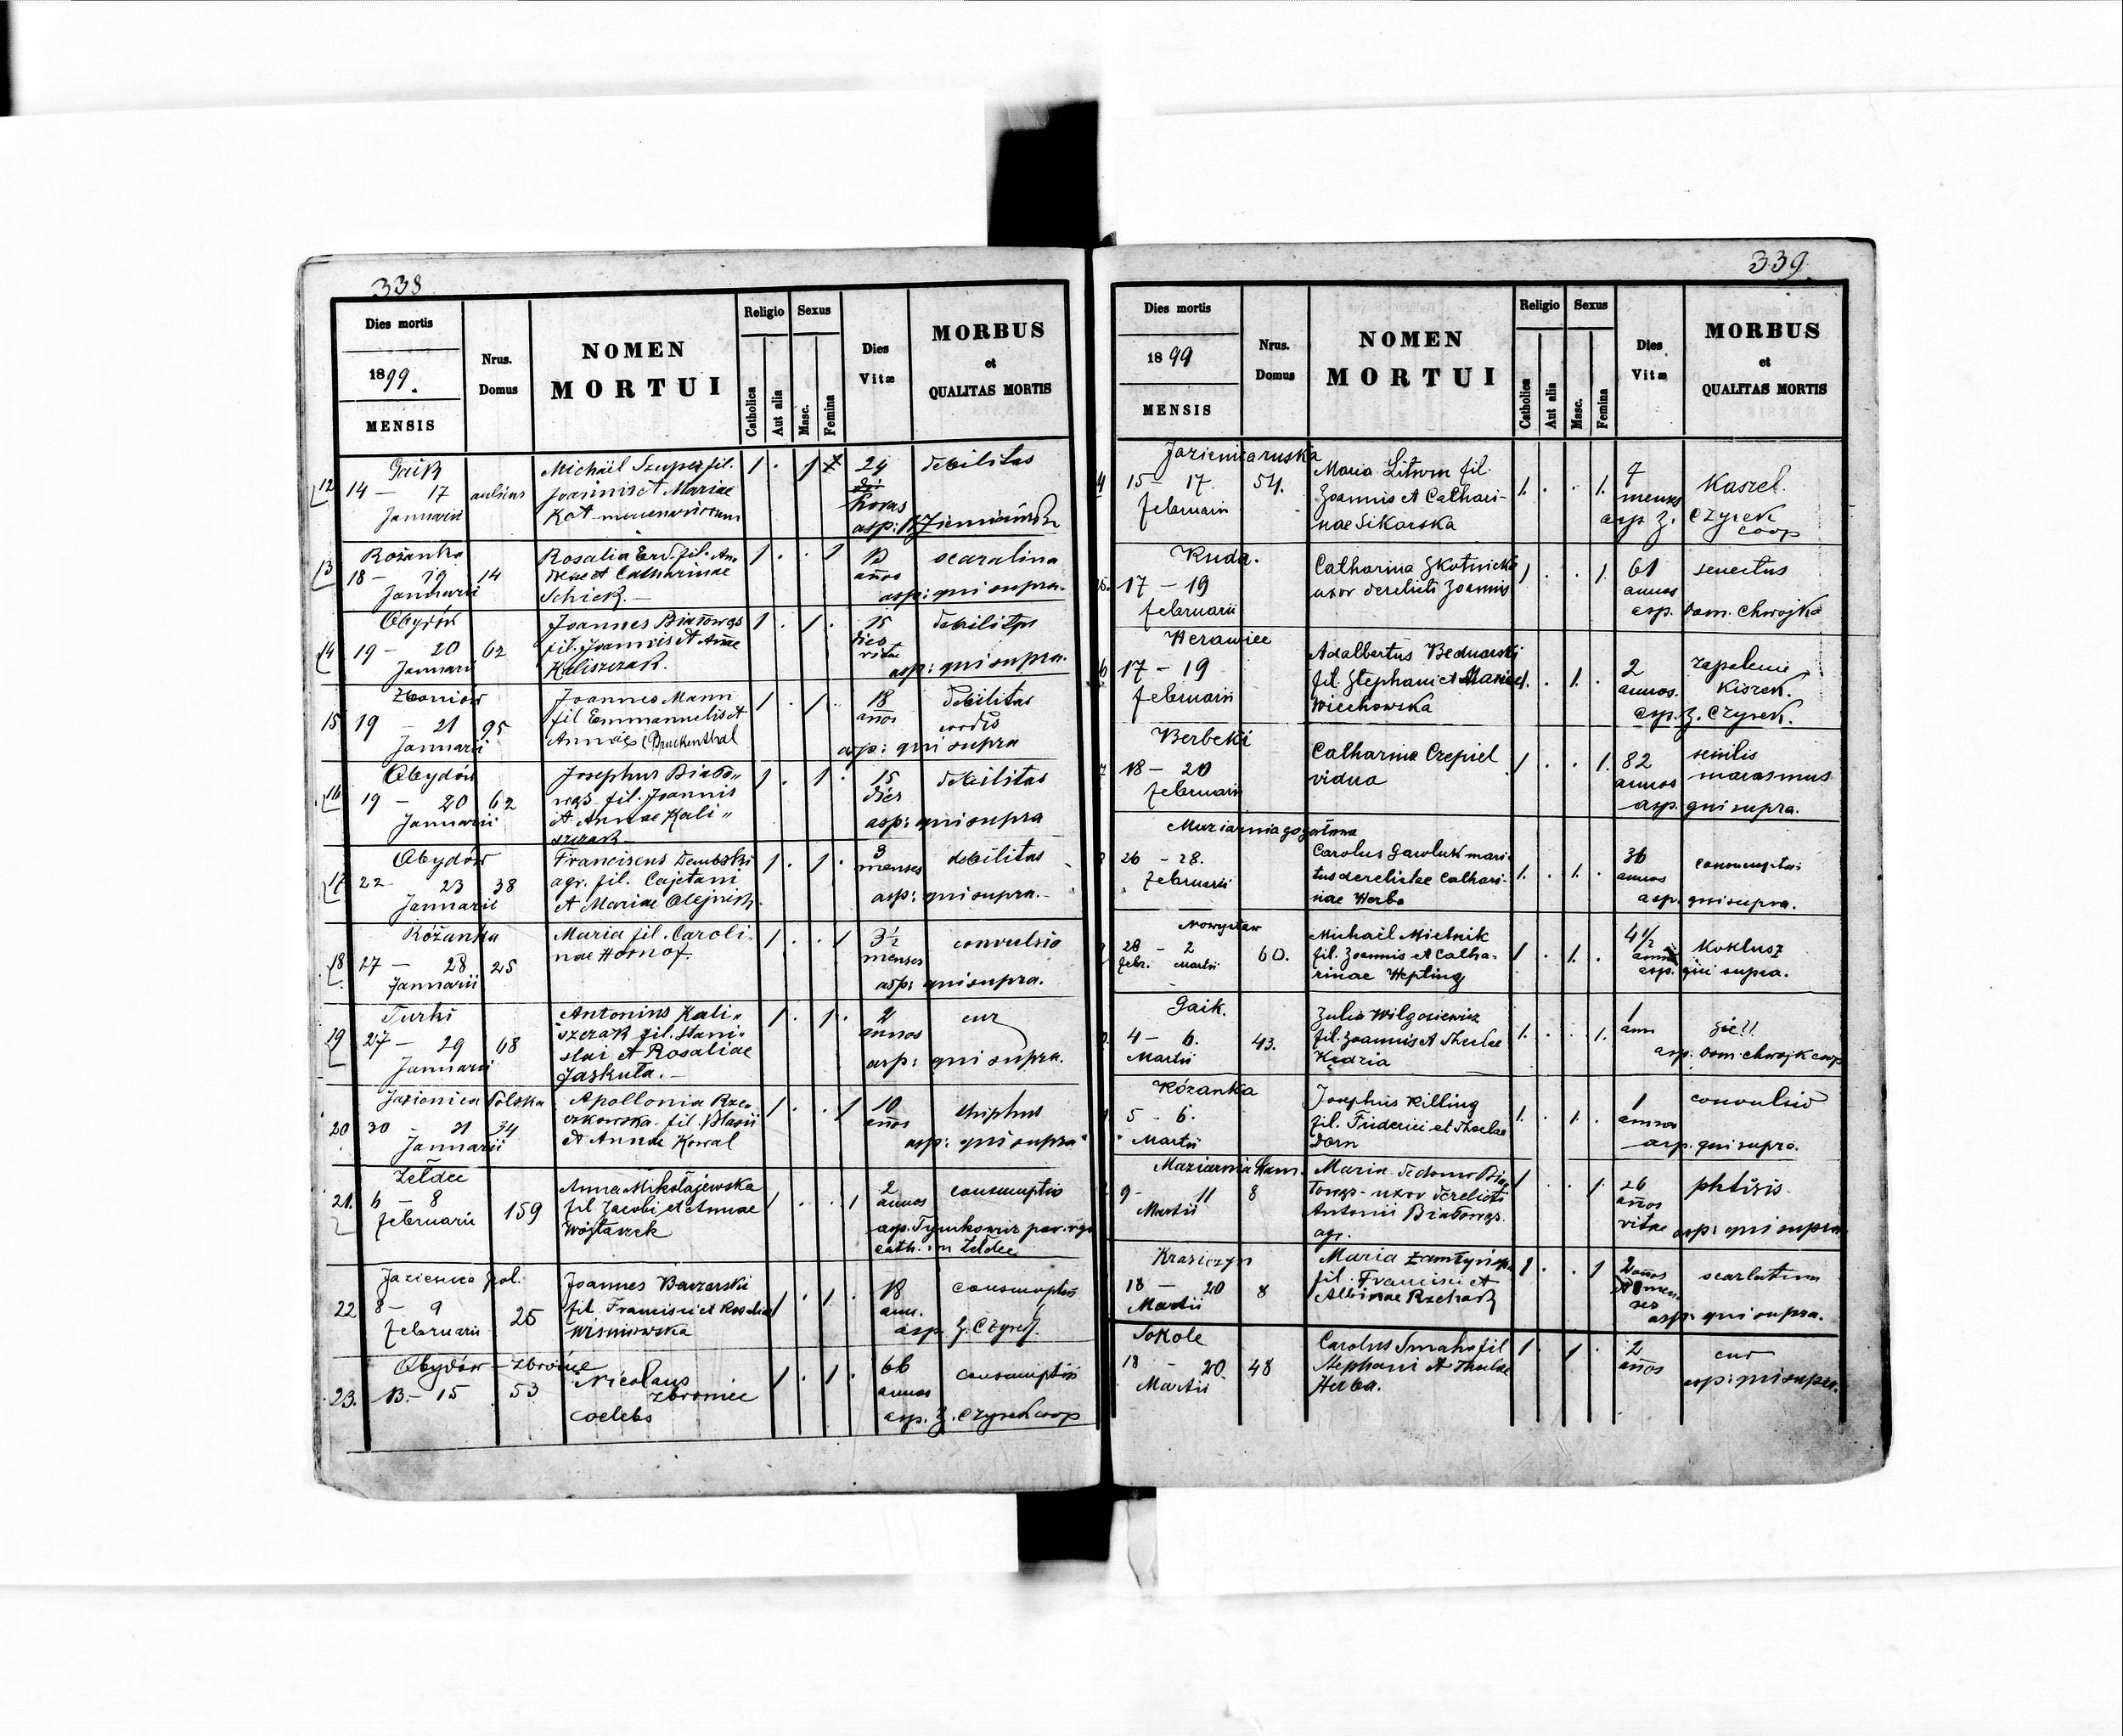 338
Dies mortis
1899.
MENSIS
Nrus. Domus
NOMEN
MORTUI
Religio
Catholica
Aut alia
Sexus
Masc.
Femina
Dies
Vitæ
MORBUS
et
QUALITAS MORTIS
12
Gaik
14 — 17
Januarii
Michaël Szuper fil.
Joannis et Mariae
1 . 1
24
horas
debilitas
13
Rożanka
18 — 19 14
Januarii
Rosalia Erd. fil. An-
dreae et Catharinae
Schick. —
1 . . 1
12
años
asp: qui supra.
14
Obydów
19 — 20 62
Januarii
Joannes Białowąs
fil. Joannis et Añae
Kaliszczak.
1 . 1 .
15
dies
vitae
debilitas
asp: qui supra.
15
Zboniów
19 — 21 95
Januarii
Joannes Mann
fil Emmanuelis et
Annae (Bruckenthal
1 . 1 .
18
años
debilitas
cordis
asp: qui supra
16
Obydów
19 — 20 62
Januarii
Josephus Biało„
wąs fil. Joannis
et Annae Kali„
szczak
1 . 1 .
15
dies
debilitas
asp: qui supra
17
Obydów
22 — 23 38
Januarii
Franciscus Dembski
agr. fil. Cajetani
et Mariae Olejnik
1 . 1 .
3
menses
debilitas
asp: qui supra. —
18
Różanka
27 — 28 25
Januarii
Maria fil. Caroli-
nae Hornof.
1 . . 1
3½
menses
convulsio
asp: qui supra.
19
Turki
27 — 29 68
Januarii
Antonius Kali„
szczak fil. Stani-
slai et Rosaliae
Jaskuła. —
1 . 1 .
2
annos
cur
asp: qui supra.
20
Jazienica Polska
30 — 31 34
Januarii
Apollonia Rze„
czkowska fil. Blasii
et Annae Kowal
1 . . 1
10
años
thiphus
asp: qui supra
21.
Żeldec
6 — 8
Februarii 159
Anna Mikołajewska
fil Jacobi et Annae
Wojtaszek
1 . . 1
2
annos
consumptio
asp. Tymkowicz par.
cath. in Żeldec
22
Jazienica pol.
8 — 9
Februarii 25
Joannes Baczarski
fil. Francisci et Rosalia
Wisniowska
1 . 1 .
18
ann.
consumptio
asp. J. Czyrek.
23.
Obydów — Zbroniec
13 — 15 53
Nicolaus
Zbroniec
coelebs
1 . 1 .
66
annos
consumptio
asp. J. Czyrek coop
339
Dies mortis
1899
MENSIS
Nrus. Domus
NOMEN
MORTUI
Religio
Catholica
Aut alia
Sexus
Masc.
Femina
Dies
Vitæ
MORBUS
et
QUALITAS MORTIS
Jazienica ruska
15 — 17. 54.
Februarii
Maria Litwin fil.
Joannis et Cathari-
nae Sikorska
1. . . 1.
7
menses
Kaszel.
asp J. Czyrek
coop
Ruda.
17 — 19
Februarii
Catharina Skotnicka
uxor derelicti Joannis
1 . . 1.
61
annos
senectus
asp. Dom. Chwojka
17 — 19
Februarii
Adalbertus Bednarski
fil. Stephani et Mariae
Wiechowska
1. . 1. .
2
annos.
zapalenie
Kiszek.
asp. J. Czyrek.
Berbeki
18 — 20
Februarii
Catharina Czepiel
vidua
1 . . 1.
82
annos
senilis
marasmus
asp. qui supra.
26 — 28.
Februarii
Carolus Gawluk mari-
tus derelictae Cathari-
nae Herba
1. . 1. .
36
annos
asp. qui supra.
Nowystaw
28 — 2 60.
Febr. Martii
Michail Mielnik
fil. Joannis et Catha-
rinae Hepting
1 . 1. .
4 1/2
annos
Koklusz
asp. qui supra.
Gaik.
4 — 6. 43.
Martii
Julia Wilgosiewicz
fil. Joannis et Theclae
Kędzia
1. . . 1.
1
ann
sic!!
asp. Dom Chwojk coop
Rózanka
5 - 6.
Martii
Josephus Killing
fil. Friderici et Theclae
Dorn
1. . 1. .
1
annos
convulsio
asp. qui supra.
Maziarnia Kam.
9 — 11 8
Martii
Maria de domo Bia-
łowąs uxor derelicti
Antonii Białowąs
agr.
1 . . 1
26
años
vitae
phtisis
asp: qui supra
Krasiczyn
18 — 20 8
Martii
fil. Francisci et
Albinae Rzehack
1 . . 1
2 años
scarlatina
asp: qui supra.
Sokole
18 — 20. 48
Martii
Carolus Smaha fil
Stephani et Theclae
Herba.
1. . 1 .
2
años
cur
asp: qui supra.